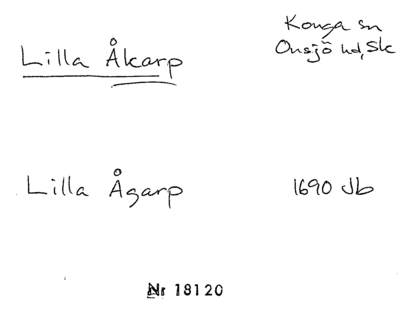 Lilla Åkarp
Konga sn
Onsjö hd, Sk
Lilla Ågarp
1690 Jb
Nr 18120